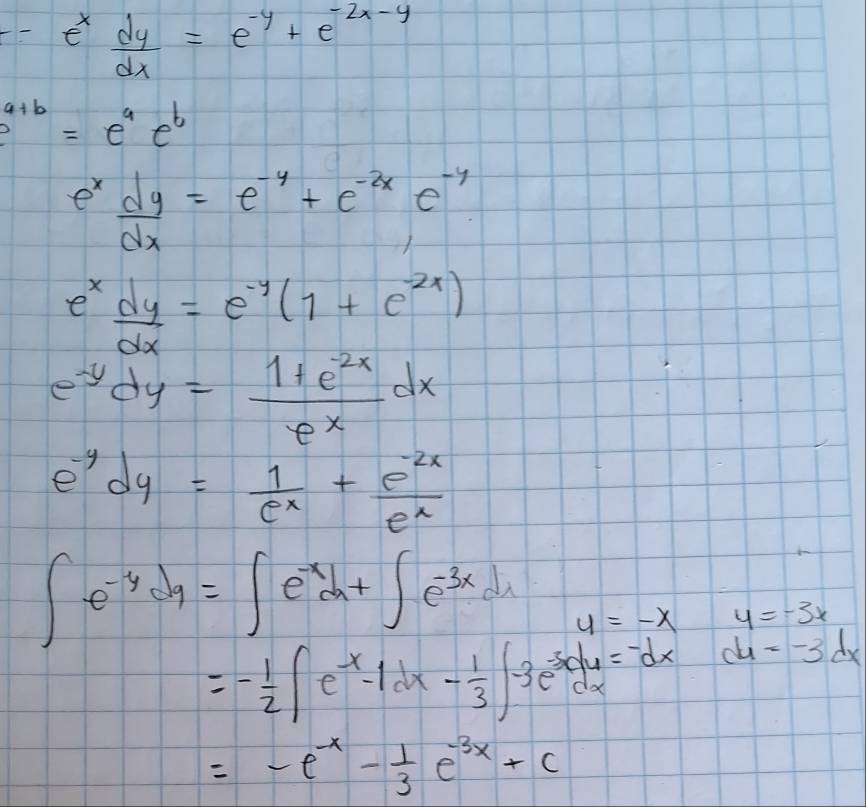 -- e^x dy/dx = e^-y + e^-2x-y
e^a+b = e^a e^b
e^x dy/dx = e^-y + e^-2x e^-y
e^x dy/dx = e^-y (1 + e^-2x)
e^-y dy = 1+e^-2x / e^x dx
e^-y dy = 1/e^x + e^-2x/e^x
∫ e^-y dy = ∫ e^-x dx + ∫ e^-3x dx
u = -x u = -3x
= -1/2 ∫ e^-x -1dx - 1/3 ∫ -3e^-3x dx du = -dx du = -3dx
= -e^-x - 1/3 e^-3x + c